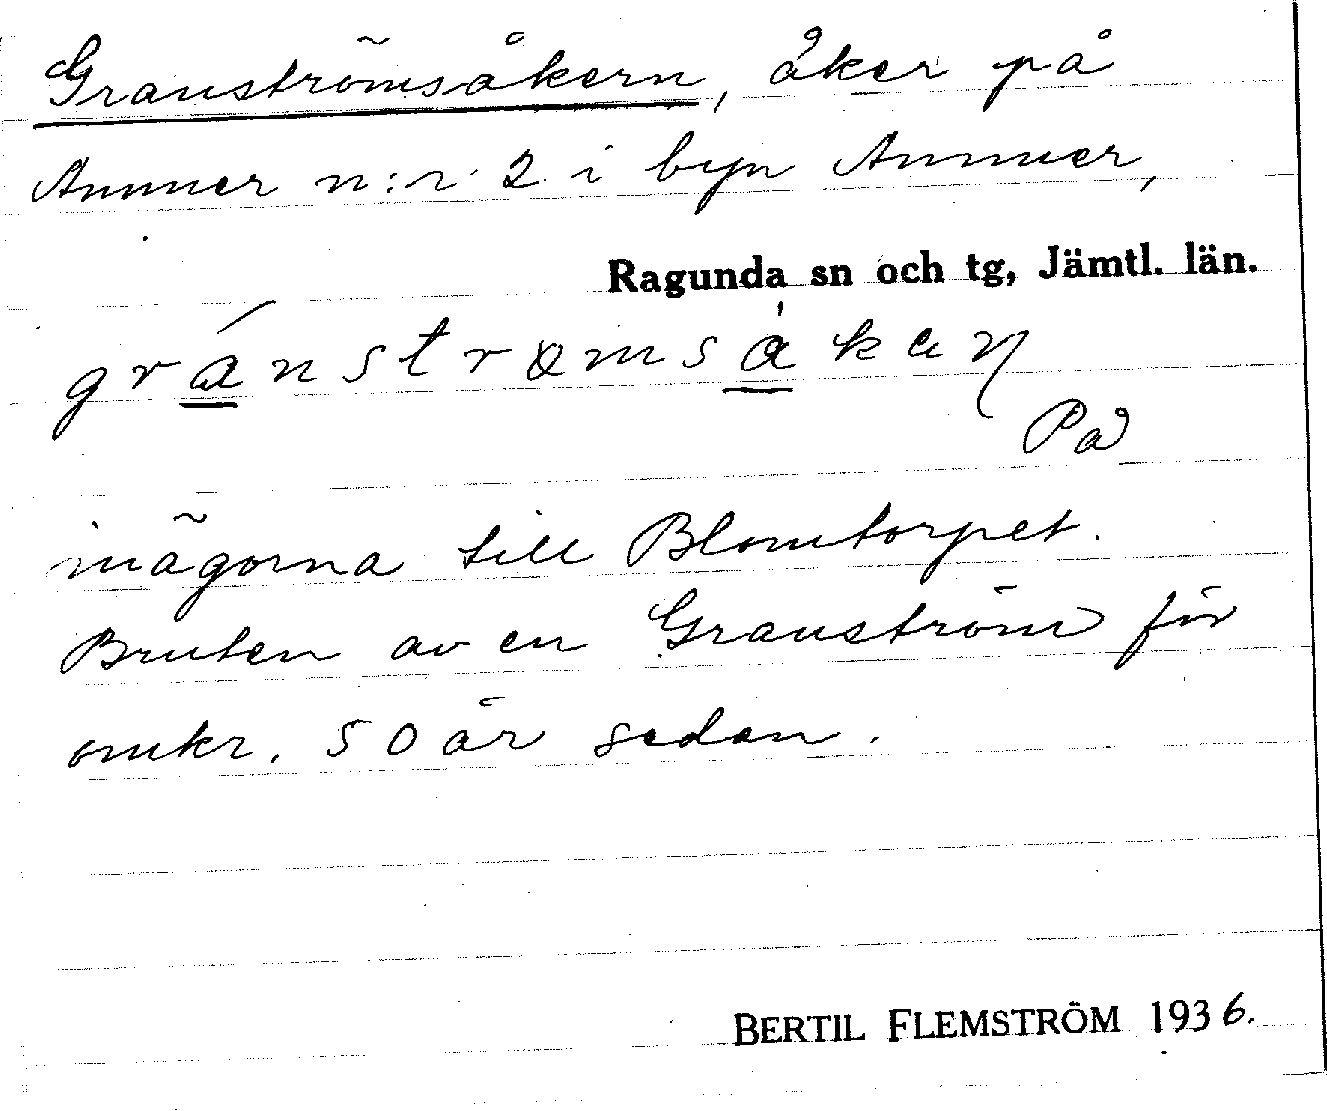 Granströmsåkern, åker på
Ammer n:r 2 i byn Ammer,
Ragunda sn och tg, Jämtl. län.
På
inägorna till Blomtorpet.
Bruten av en Granström för
omkr. 50 år sedan.
BERTIL FLEMSTRÖM 1936.